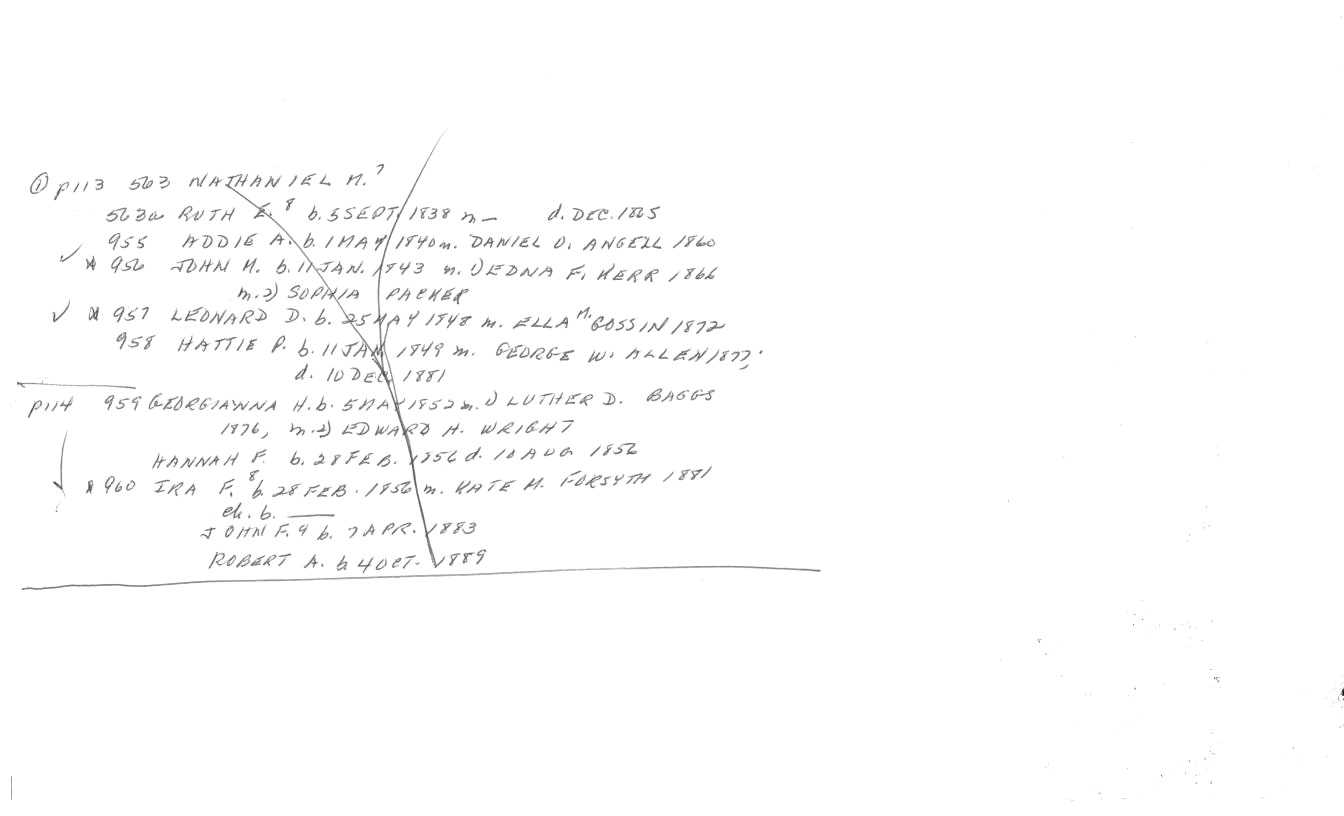 ① p113 563 NATHANIEL M.⁷
563a RUTH E.⁸ b. 5 SEPT. 1838 m — d. DEC. 1865
955 ADDIE A. b. 1 MAY 1840 m. DANIEL O. ANGELL 1860
✓ * 956 JOHN M. b. 11 JAN. 1843 m. 1) EDNA F. KERR 1866
m. 2) SOPHIA PACKER
✓ * 957 LEONARD D. b. 25 MAY 1848 m. ELLA M. GOSSIN 1872
958 HATTIE P. b. 11 JAN 1849 m. GEORGE W. ALLEN 1877.
d. 10 DEC. 1881
p114 959 GEORGIANNA H. b. 5 MAY 1852 m. 1) LUTHER D. BAGGS
1876, m. 2) EDWARD H. WRIGHT
HANNAH F. b. 28 FEB. 1856 d. 10 AUG 1856
* 960 IRA F.⁸ b. 28 FEB. 1856 m. KATE M. FORSYTH 1881
ch. b. —
JOHN F. 9 b. 7 APR. 1883
ROBERT A. b 4 OCT. 1889